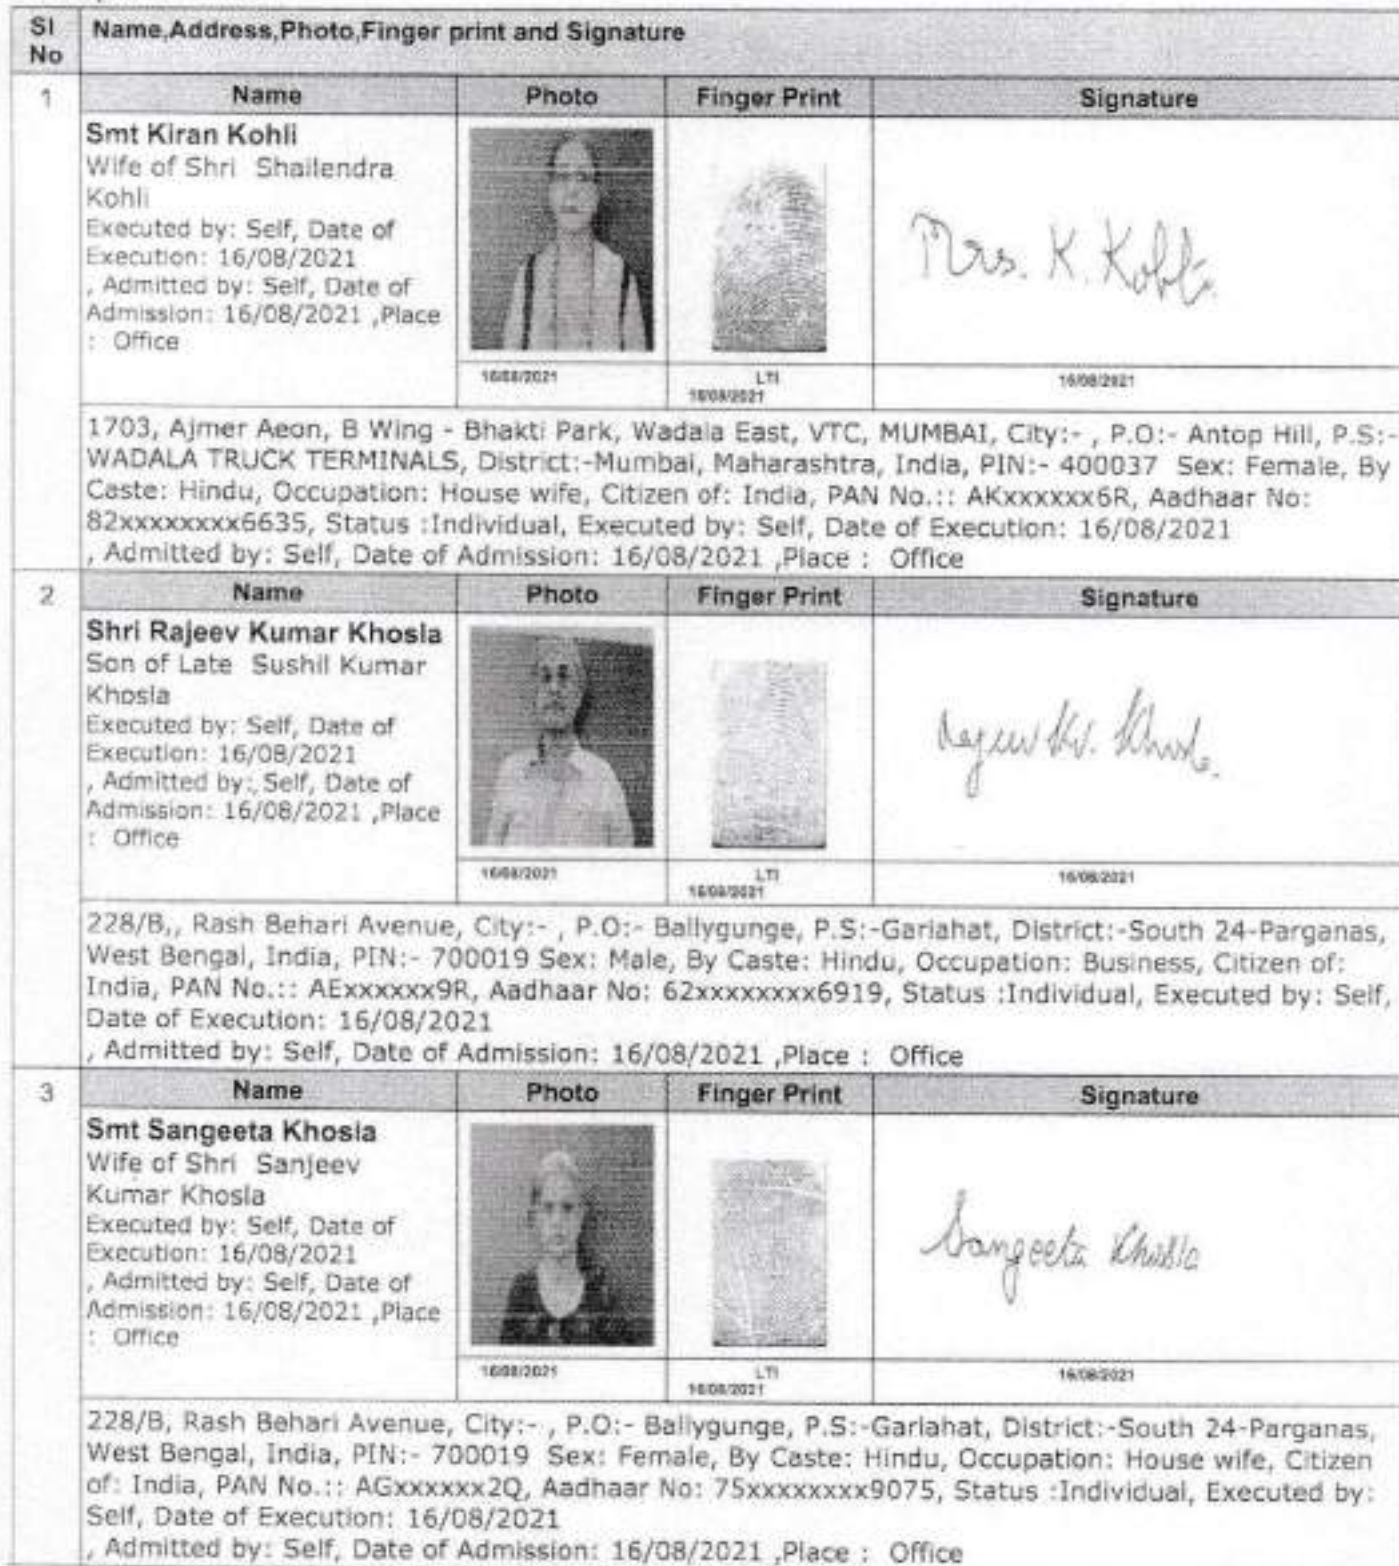 Sl No
Name,Address,Photo,Finger print and Signature
1
Name Photo Finger Print Signature
Smt Kiran Kohli
Wife of Shri Shailendra
Kohli
Executed by: Self, Date of
Execution: 16/08/2021
, Admitted by: Self, Date of
Admission: 16/08/2021 ,Place
: Office
Mrs. K. Kohli
16/08/2021
LTI
16/08/2021
16/08/2021
1703, Ajmer Aeon, B Wing - Bhakti Park, Wadala East, VTC, MUMBAI, City:- , P.O:- Antop Hill, P.S:-
WADALA TRUCK TERMINALS, District:-Mumbai, Maharashtra, India, PIN:- 400037 Sex: Female, By
Caste: Hindu, Occupation: House wife, Citizen of: India, PAN No.:: AKxxxxxx6R, Aadhaar No:
82xxxxxxxx6635, Status :Individual, Executed by: Self, Date of Execution: 16/08/2021
, Admitted by: Self, Date of Admission: 16/08/2021 ,Place : Office
2
Name Photo Finger Print Signature
Shri Rajeev Kumar Khosla
Son of Late Sushil Kumar
Khosla
Executed by: Self, Date of
Execution: 16/08/2021
, Admitted by: Self, Date of
Admission: 16/08/2021 ,Place
: Office
Rajeev Kr. Khosla.
16/08/2021
LTI
16/08/2021
16/08/2021
228/B,, Rash Behari Avenue, City:- , P.O:- Ballygunge, P.S:-Gariahat, District:-South 24-Parganas,
West Bengal, India, PIN:- 700019 Sex: Male, By Caste: Hindu, Occupation: Business, Citizen of:
India, PAN No.:: AExxxxxx9R, Aadhaar No: 62xxxxxxxx6919, Status :Individual, Executed by: Self,
Date of Execution: 16/08/2021
, Admitted by: Self, Date of Admission: 16/08/2021 ,Place : Office
3
Name Photo Finger Print Signature
Smt Sangeeta Khosla
Wife of Shri Sanjeev
Kumar Khosla
Executed by: Self, Date of
Execution: 16/08/2021
, Admitted by: Self, Date of
Admission: 16/08/2021 ,Place
: Office
Sangeeta Khosla
16/08/2021
LTI
16/08/2021
16/08/2021
228/B, Rash Behari Avenue, City:- , P.O:- Ballygunge, P.S:-Gariahat, District:-South 24-Parganas,
West Bengal, India, PIN:- 700019 Sex: Female, By Caste: Hindu, Occupation: House wife, Citizen
of: India, PAN No.:: AGxxxxxx2Q, Aadhaar No: 75xxxxxxxx9075, Status :Individual, Executed by:
Self, Date of Execution: 16/08/2021
, Admitted by: Self, Date of Admission: 16/08/2021 ,Place : Office